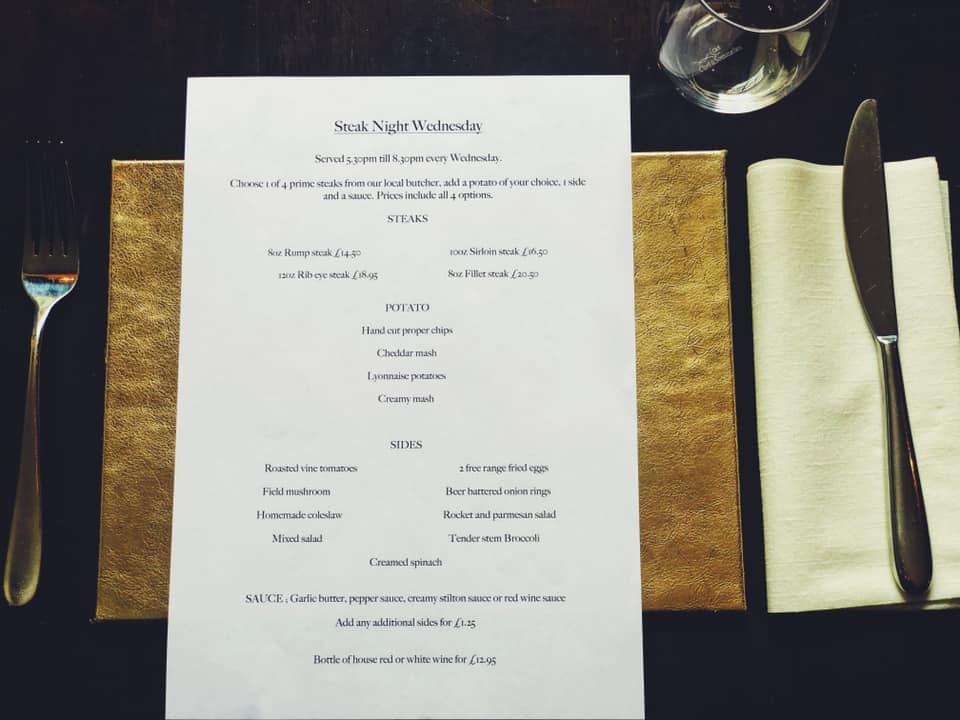 Steak Night Wednesday
Served 5.30pm till 8.30pm every Wednesday.
Choose 1 of 4 prime steaks from our local butcher, add a potato of your choice, 1 side
and a sauce. Prices include all 4 options.
STEAKS
8oz Rump steak £14.50 10oz Sirloin steak £16.50
12oz Rib eye steak £18.95 8oz Fillet steak £20.50
POTATO
Hand cut proper chips
Cheddar mash
Lyonnaise potatoes
Creamy mash
SIDES
Roasted vine tomatoes 2 free range fried eggs
Field mushroom Beer battered onion rings
Homemade coleslaw Rocket and parmesan salad
Mixed salad Tender stem Broccoli
Creamed spinach
SAUCE ; Garlic butter, pepper sauce, creamy stilton sauce or red wine sauce
Add any additional sides for £1.25
Bottle of house red or white wine for £12.95